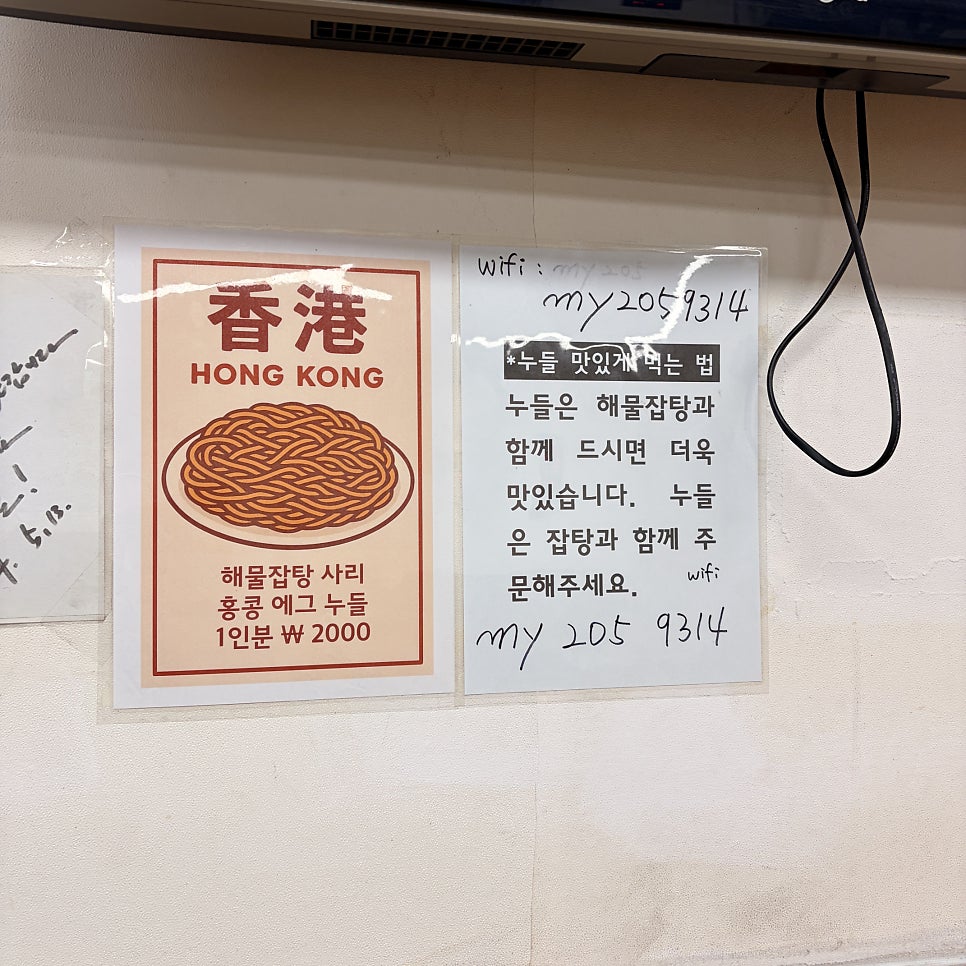 香港
HONG KONG
해물잡탕 사리
홍콩 에그 누들
1인분 ₩ 2000
wifi : my 205
my 205 9314
*누들 맛있게 먹는 법
누들은 해물잡탕과
함께 드시면 더욱
맛있습니다. 누들
은 잡탕과 함께 주
문해주세요.
wifi
my 205 9314
5.13.